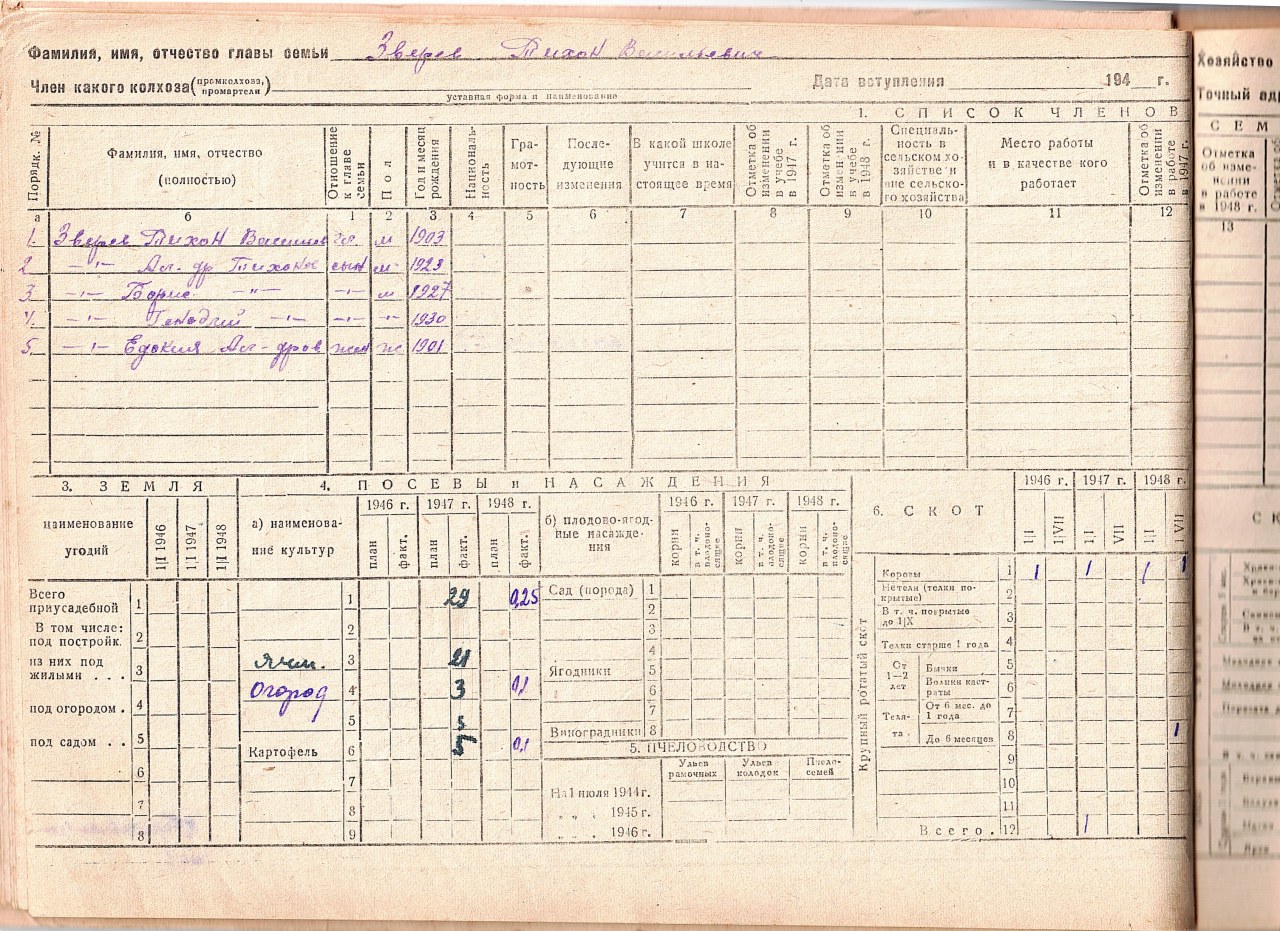 Фамилия, имя, отчество главы семьи Зверев Тихон Васильевич
Член какого колхоза (промколхоза, промартели) Дата вступления 194 г.
уставная форма и наименование
1. СПИСОК ЧЛЕНОВ
Порядк. № Фамилия, имя, отчество (полностью) Отношение к главе семьи Пол Год и месяц рождения Националь-ность Гра-мот-ность После-дующие изменения В какой школе учится в на-стоящее время Отметка об изменении в учебе в 1947 г. Отметка об изменении в учебе в 1948 г. Специаль-ность в сельском хо-зяйстве и вне сельско-го хозяйства Место работы и в качестве кого работает Отметка об изменении в работе в 1947 г.
а б 1 2 3 4 5 6 7 8 9 10 11 12
1. Зверев Тихон Васильев гл. м 1903
2 –"– Ал-др Тихонов сын м 1923
3. –"– Борис –"– –"– м 1927
4. –"– Генадий –"– –"– –"– 1930
5. –"– Едокия Ал-дров жен ж 1901
3. ЗЕМЛЯ
наименование угодий 1|I 1946 1|I 1947 1|I 1948
Всего приусадебной 1
В том числе: под постройк. 2
из них под жилыми . . . 3
под огородом . 4
под садом . . 5
6
7
8
4. ПОСЕВЫ и НАСАЖДЕНИЯ
а) наименова-ние культур 1946 г. 1947 г. 1948 г.
план факт. план факт. план факт.
1 29 0,25
2
Ячм. 3 21
Огород 4 3 0,1
5 5
Картофель 6 0,1
7
8
9
б) плодово-ягод-ные насажде-ния 1946 г. 1947 г. 1948 г.
корни в т. ч. плодоно-сящие корни в т. ч. плодоно-сящие корни в т. ч. плодоно-сящие
Сад (порода) 1
2
3
4
Ягодники 5
6
7
Виноградники 8
5. ПЧЕЛОВОДСТВО
Ульев рамочных Ульев колодок Пчело-семей
На 1 июля 1944 г.
" " " 1945 г.
" " " 1946 г.
6. СКОТ 1946 г. 1947 г. 1948 г.
1|I 1|VII 1|I VII 1|I 1 VII
Крупный рогатый скот
Коровы 1 1 1 1 1
Нетели (телки по-крытые) 2
В т. ч. покрытые до 1|X 3
Телки старше 1 года 4
От 1—2 лет Бычки 5
Волики каст-раты 6
Теля-та. От 6 мес. до 1 года 7
До 6 месяцев 8 1
9
10
11
Всего . 12 1
Хозяйство
Точный ад
СЕМ
Отметка об изме-нении в работе в 1948 г.
13